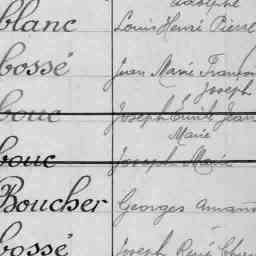 Adolphe
blanc Louis Henri Pierre
bossé Jean Marie François
Joseph
bouc Joseph Émile Jean
Marie
bouc Joseph Marie
Boucher Georges Amand
bossé Joseph René